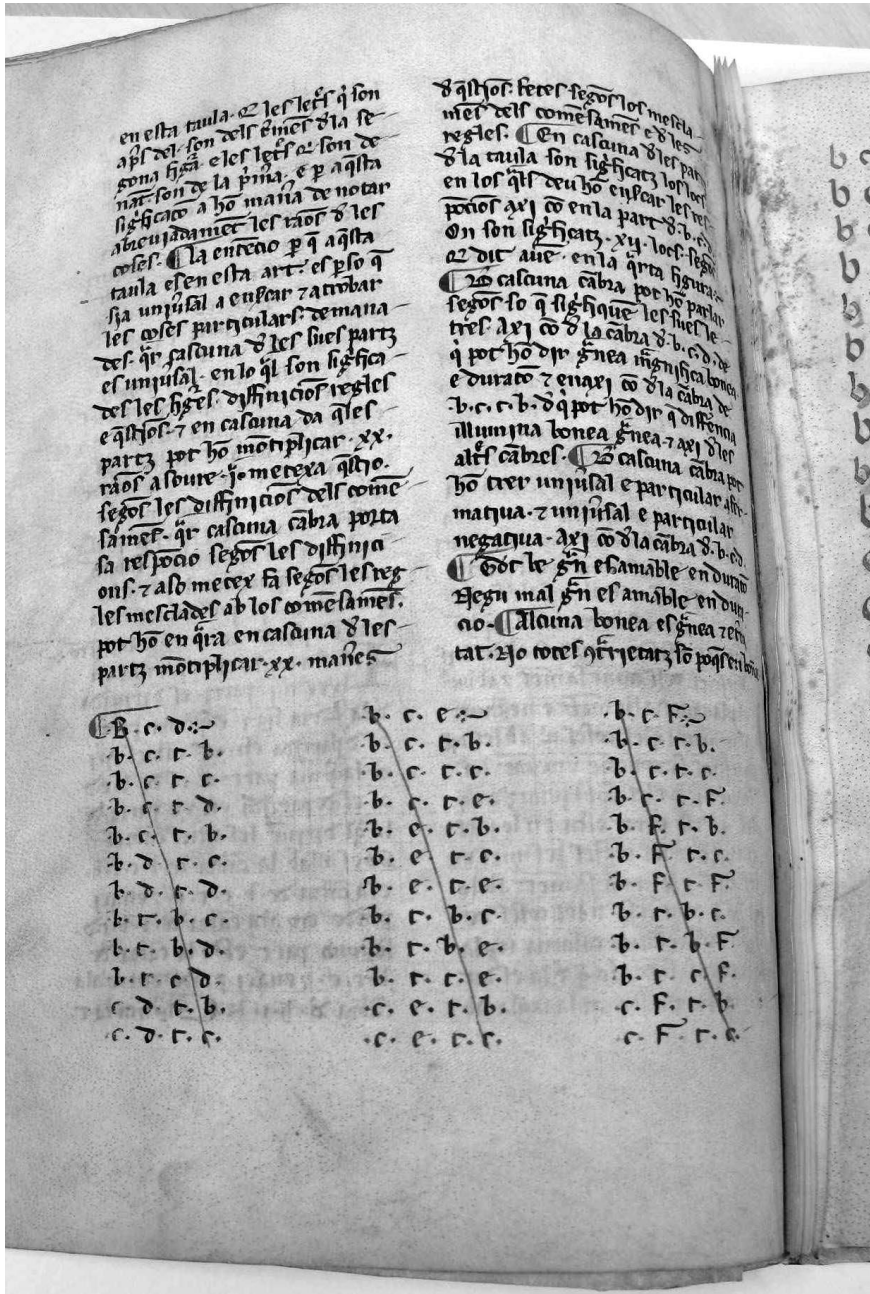 en esta taula. E les letrˢ q̉ son
apˢ del .t. son dels cōmēs d̉la se
gona figᵃ. e les letrˢ q̄ son de
nāt. son de la p̉mᵃ. e p aq̄sta
sig̉ficacō a hō mañᵃ de notar
abreviadamēt les raōs d̉ les
coses. ¶ La entēcio p q̄ aq̄sta
taula es en esta art. es p so q̄
sia univ̉sal a ēcercar ⁊ a trobar
les coses particulars. demana
des. q̄r cascuna d̉ les sues partꝫ
es univ̉sal. en lo q̄l son sig̉fica
des les fig̉es. diffiniciōs regles
e q̄stiōs. ⁊ en cascuna da q̄les
partꝫ pot hō mōtiplicar .xx.
raōs a soure .j. metexa q̄stio.
segōs les diffiniciōs dels comē
samēs. q̄r cascuna cābra porta
sa respōcio segōs les diffinici
ons. ⁊ aso metex fa segōs les reg
les mesclades ab los comēsamēs.
pot hō en q̄ra en cascuna d̉les
partꝫ mōtiplicar .xx. mañes
d̉ q̄stiōs. fetes segōs los mescla
mēs dels comēsamēs e d̉ les
regles. ¶ En cascuna d̉les partꝫ
d̉ la taula son sig̉ficatꝫ los locs
en los q̄ls deu hō ēcercar les res
pōcios axi cō en la part d̉ .b.c.d.
On son sig̉ficatꝫ .xij. locs. segōs
q̄ dit auē. en la q̄rta figura.
¶ Ꝺ cascuna cābra pot hō parlar
segōs so q̄ sig̉fiquē les sues le
tres. Axi cō d̉ la cābra d̉ .b.c.d. de
q̉ pot hō dir g̃nea mag̃nifica bonea
e duratō ⁊ enaxi cō d̉ la cābra de
.b.c.t.b. d̉ q̉ pot hō dir q̄ diffēncia
illumina bonea g̃nea. ⁊ axi d̉les
altrˢ cābres. ¶ Ꝺ cascuna cābra pot
hō trer univ̉sal e particular afir
mativa. ⁊ univ̉sal e particular
negativa. Axi cō d̉ la cābra d̉ .b.c.d.
¶ Tot be g̃n es amable en duratō
Negu mal g̃n es amable en dura
cio. ¶ Alcuna bonea es g̃nea ⁊ et̉ni
tat. No totes ꝯt̉rietatꝫ sō poq̄s en bōea
¶ B. c. d.
b. c. t. b.
b. c. t. c.
b. c. t. d.
b. c. t. b.
b. d. t. c.
b. d. t. d.
b. t. b. c.
b. t. b. d.
b. t. c. d.
c. d. t. b.
c. d. t. c.
b. c. e.
b. c. t. b.
b. c. t. c.
b. c. t. e.
b. e. t. b.
b. e. t. c.
b. e. t. e.
b. t. b. c.
b. t. b. e.
b. t. c. e.
c. e. t. b.
.c. e. t. c.
b. c. F.
b. c. t. b.
b. c. t. c.
b. c. t. F.
b. F. t. b.
b. F. t. c.
b. F. t. F.
b. t. b. c.
b. t. b. F.
b. t. c. F.
c. F. t. b.
c. F. t. c.